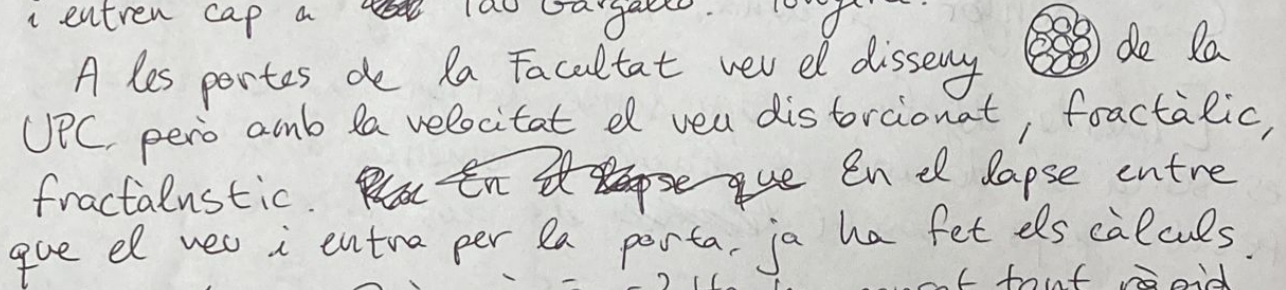 i entren cap a
A les portes de la Facultat veu el disseny de la
UPC, però amb la velocitat el veu distorcionat, fractàlic,
fractàlnstic. En el lapse entre
que el veu i entra per la porta, ja ha fet els càlculs.
tant ràpid